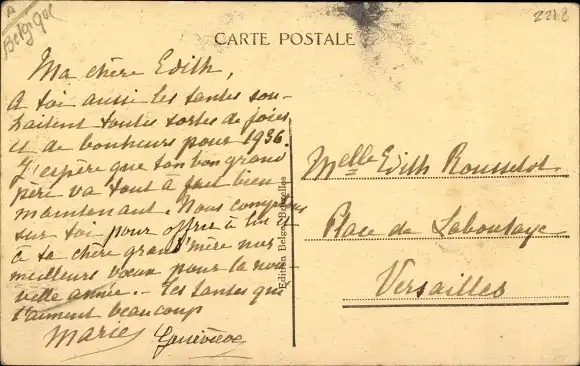 A
Belgique
2212
CARTE POSTALE
Ma chère Edith,
A toi aussi les tantes sou-
haitent toutes sortes de joies
et de bonheurs pour 1936.
J'espère que ton bon grand
père va tout à fait bien
maintenant. Nous comptons
sur toi pour offrir à lui et
à ta chère grand'mère nos
meilleurs vœux pour la nou
velle année. - Tes tantes qui
t'aiment beaucoup
Marie Geneviève
Edition Belge, Bruxelles
Melle Edith Rousselot
Place de Laboulaye
Versailles